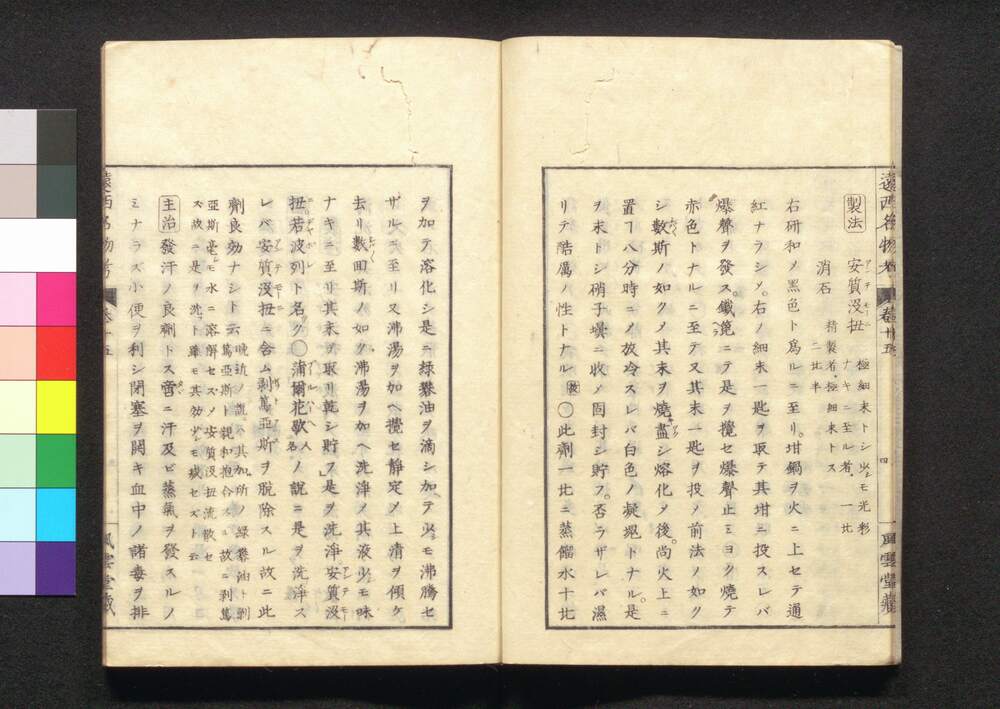 遠西名物考
卷廿五
四
風雲堂藏
製法
安質没扭 極細末トシ少モ光彩ナキニ至ル者 一比
消石 精製者極細末トス 二比半
右研和〆黒色ト爲ルニ至リ。坩鍋ヲ火ニ上セテ通
紅ナラシメ。右ノ細末一匙ヲ取テ其坩ニ投スレバ
爆聲ヲ發ス。鐵箆ニテ是ヲ攪セ爆聲止ミヨク燒テ
赤色トナルニ至テ又其末一匙ヲ投〆前法ノ如ク
シ數斯ノ如ク〆其末ヲ燒盡シ熔化〆後。尚火上ニ
置丁八分時ニ〆放冷スレバ白色ノ凝塊トナル。是
ヲ末トシ硝子壜ニ收メ固封シ貯フ。否ラザレバ濕
リテ酷厲ノ性トナル 〇此劑一比ニ蒸餾水十比
ヲ加テ溶化シ是ニ緑礬油ヲ滴シ加テ少モ沸騰セ
ザルニ至リ又沸湯ヲ加ヘ攪セ靜定〆上清ヲ傾ケ
去リ數回斯ノ如ク沸湯ヲ加ヘ洗淨〆其液少モ味
ナキニ至リ其末ヲ取リ乾シ貯フ」是ヲ洗淨安質没
扭若波列ト名ク〇蒲爾花歇人名ノ説ニ是ヲ洗淨ス
レバ安質没扭ニ含ム剥篤亞斯ヲ脱除スル故ニ此
劑良効ナシト云 晩近ノ説ニ其加所ノ緑礬油ト剥篤亞斯ト親和抱合ス。故ニ剥篤
亞斯毫モ水ニ溶解セズ〆安質没扭流散セズ故ニ是ヲ洗フト雖モ其効少モ減セズト云
主治 發汗ノ良劑トス啻ニ汗及ビ蒸氣ヲ發スルノ
ミナラズ小便ヲ利シ閉塞ヲ開キ血中ノ諸毒ヲ排